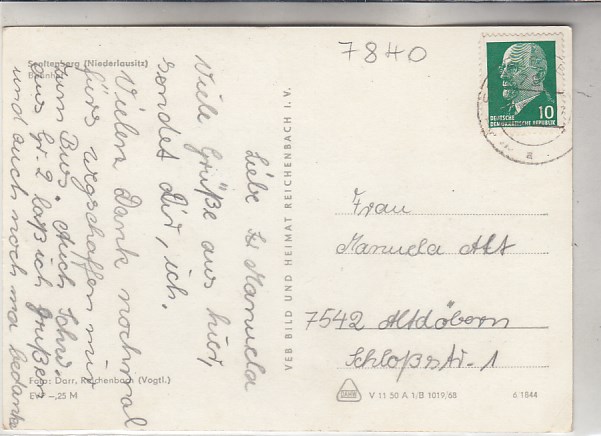 Senftenberg (Niederlausitz)
Bahnhof
7840
10
DEUTSCHE
DEMOKRATISCHE REPUBLIK
a
Liebe Manuela
Viele Grüße aus hier,
sendet dir, ich.
Vielen Dank nochmal
fürs wegschaffen mir
zum Bus. Auch Schw.
aus Gr. 2 laß ich grüßen
und auch noch ma bedanke
VEB BILD UND HEIMAT REICHENBACH I. V.
Frau
Manuela Alt
7542 Altdöbern
Schloßstr. 1
Foto: Darr, Reichenbach (Vogtl.)
EVP –,25 M
V 11 50 A 1/B 1019/68
6 1844